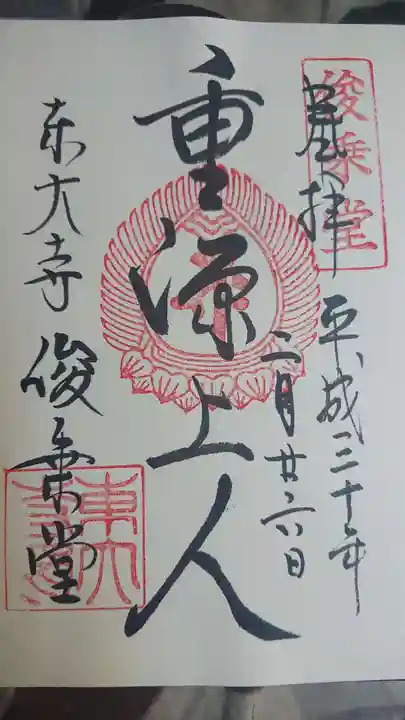 俊乗堂
奉拝
平成三十年
二月廿六日
重源上人
東大寺 俊乗堂
東大